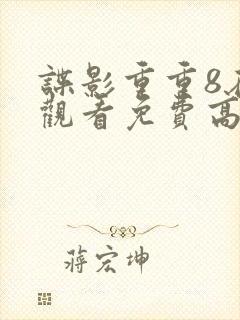 諜影重重8在
觀看免費高
蔣宏坤